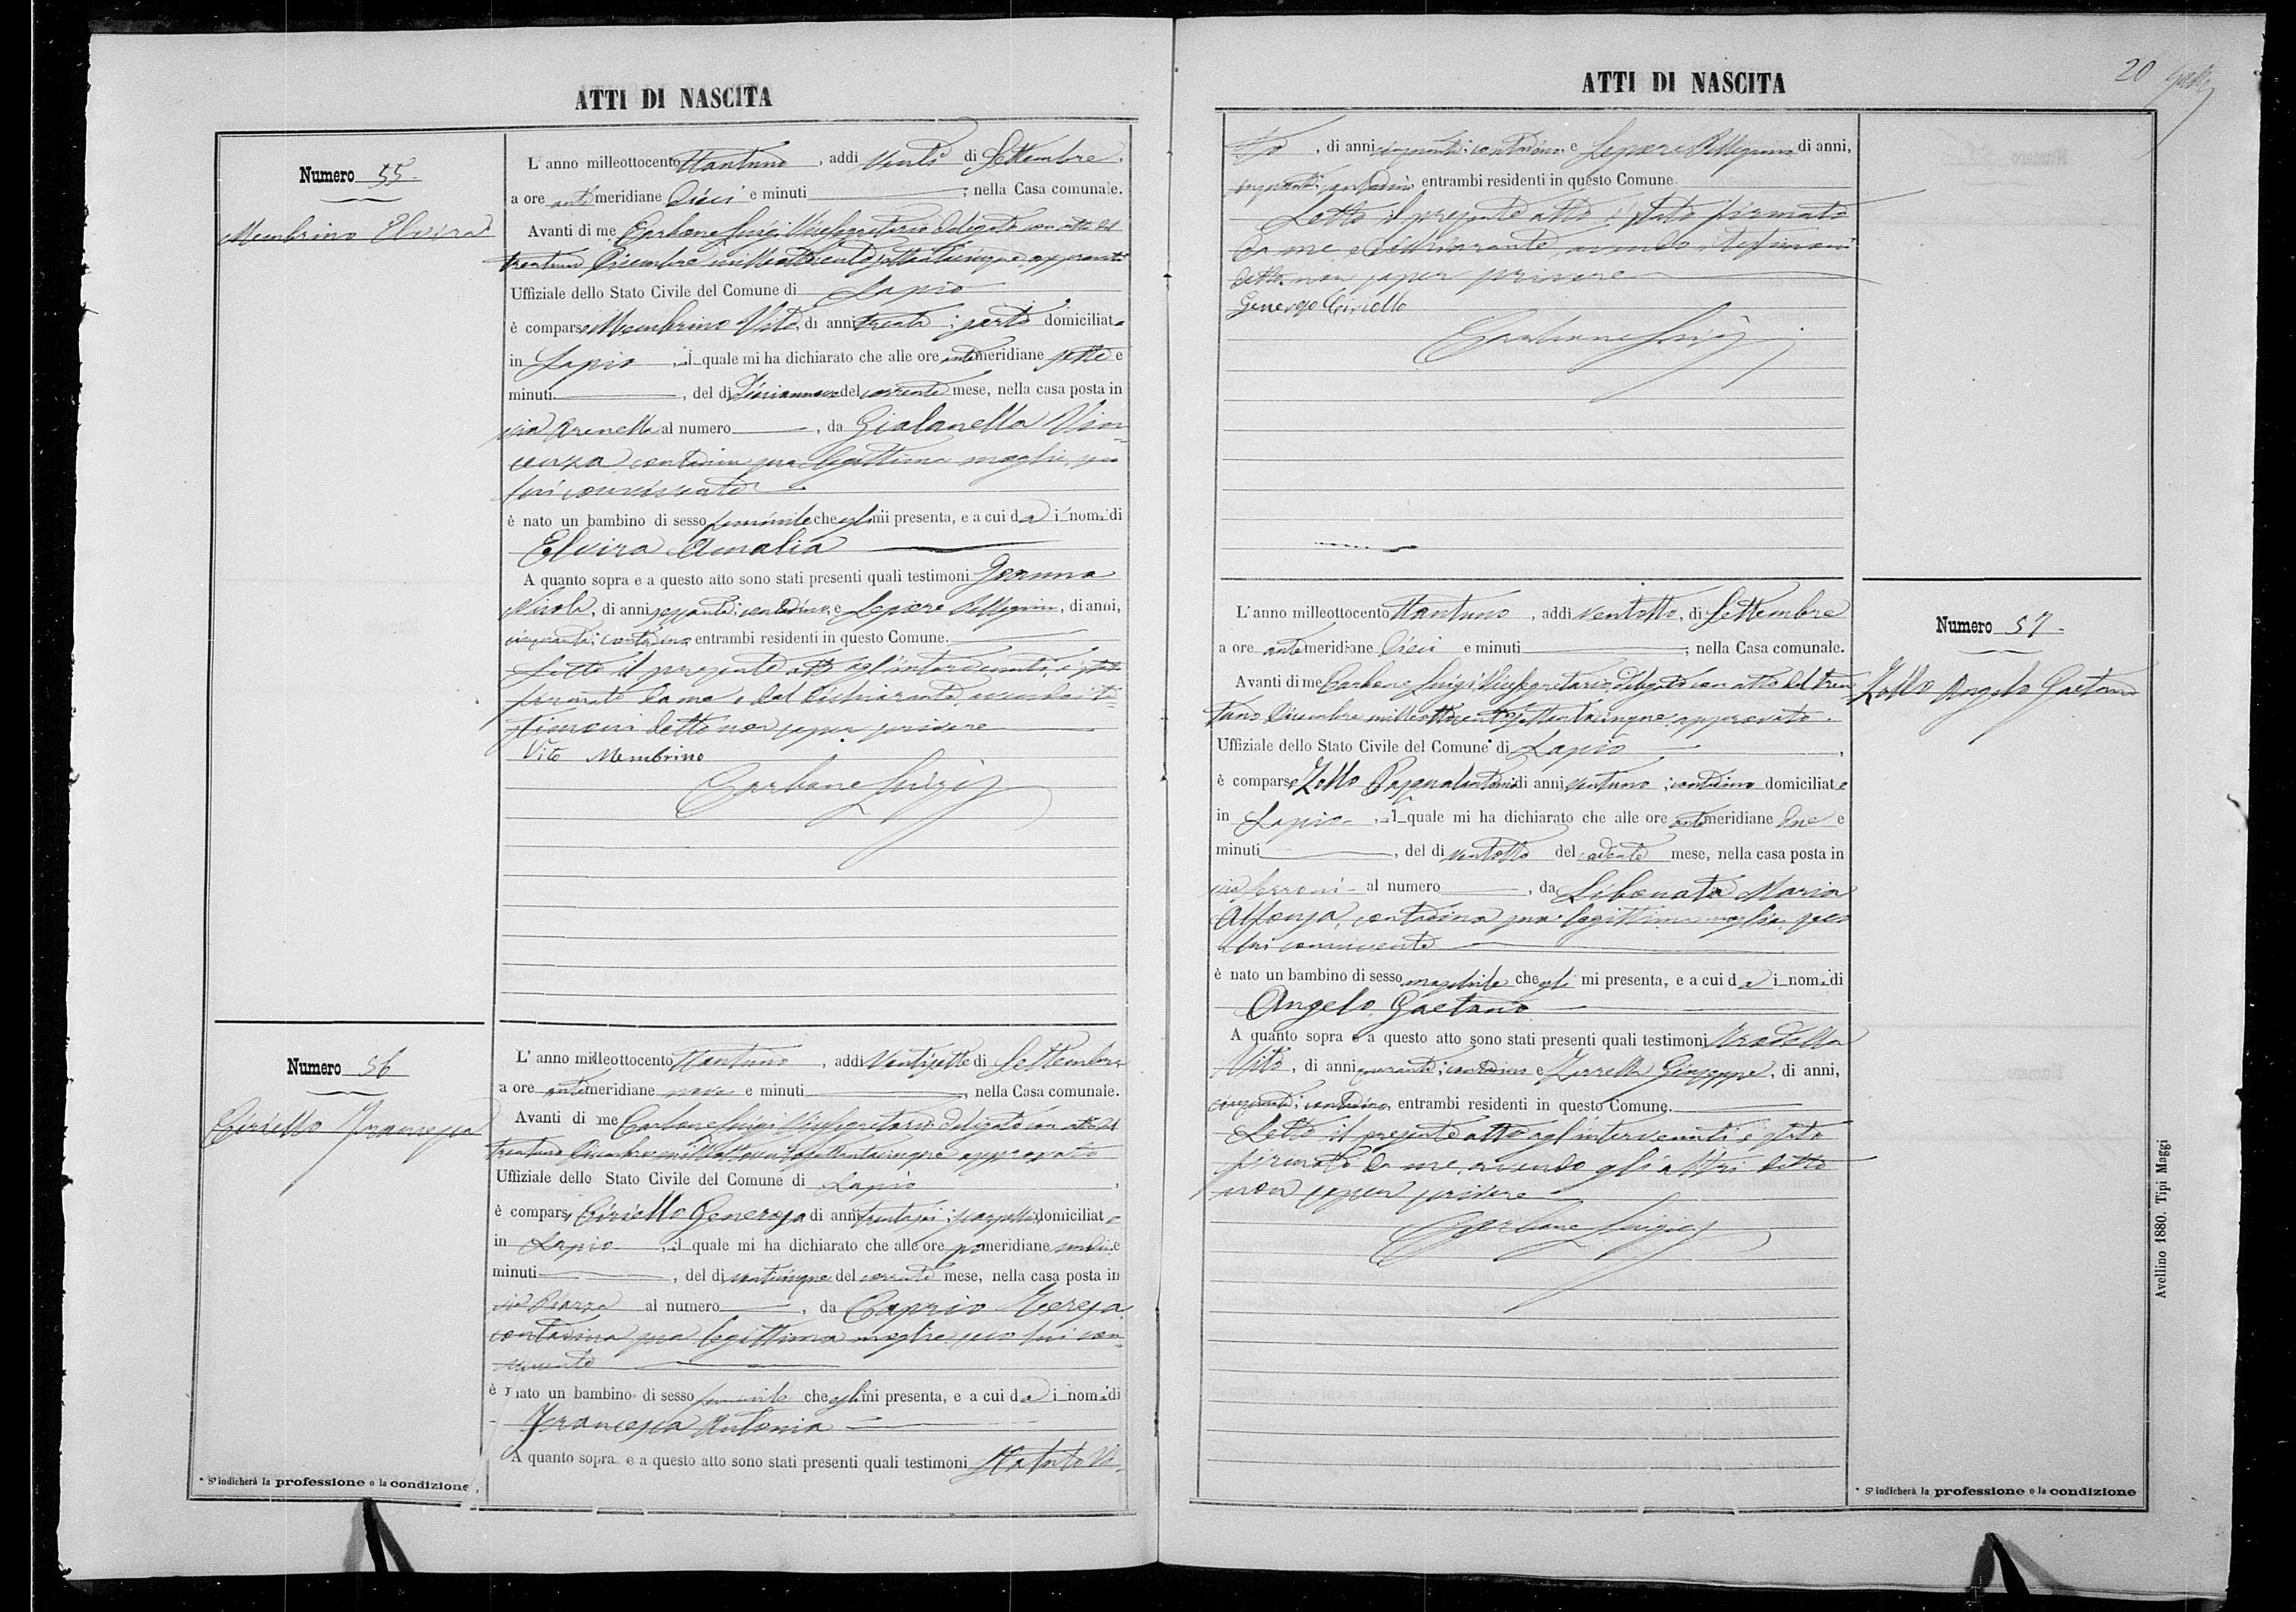 ATTI DI NASCITA
Numero 55.
Membrino Elvira
L'anno milleottocento ttantuno, addi venti di Settembre,
a ore antimeridiane dieci e minuti ; nella Casa comunale.
Avanti di me Carbone Luigi Vicesegretario delegato con atto del
trentuno Dicembre milleottocentosettantacinque approvato
Uffiziale dello Stato Civile del Comune di Lapio
è comparso Membrino Vito, di anni trenta; sarto domiciliato
in Lapio, il quale mi ha dichiarato che alle ore antimeridiane sette e
minuti , del dì diciannove del corrente mese, nella casa posta in
via Arenella al numero , da Gialanella Vin-
cenza contadina sua legittima moglie, seco
lui convivente
è nato un bambino di sesso femminile che egli mi presenta, e a cui dà i nomi di
Elvira Amalia
A quanto sopra e a questo atto sono stati presenti quali testimoni
Nicola, di anni sessanta; contadino, e Lepore Pellegrino, di anni,
cinquanta; contadino entrambi residenti in questo Comune.
Letto il presente atto agl'intervenuti, è stato
firmato da me e dal dichiarante, avendo i te-
stimoni detto non saper scrivere
Vito Membrino
Carbone Luigi
Numero 56
Ciriello Francesca
L'anno milleottocento ttantuno, addi ventisette di Settembre
a ore antimeridiane nove e minuti , nella Casa comunale.
Avanti di me Carbone Luigi Vicesegretario delegato con atto del
trentuno Dicembre milleottocentosettantacinque approvato
Uffiziale dello Stato Civile del Comune di Lapio,
è comparso Ciriello Generoso di anni trentasei; domiciliato
in Lapio, il quale mi ha dichiarato che alle ore pomeridiane undici e
minuti , del dì venticinque del corrente mese, nella casa posta in
via Piazza al numero , da Caprio Teresa
contadina sua legittima moglie, seco lui con-
vivente
è nato un bambino di sesso femminile che egli mi presenta, e a cui dà i nomi di
Francesca Antonia
A quanto sopra e a questo atto sono stati presenti quali testimoni Vi-
* S'indicherà la professione o la condizione
ATTI DI NASCITA
20
to, di anni cinquanta; contadino e Lepore Pellegrino di anni,
cinquanta; contadino entrambi residenti in questo Comune
Letto il presente atto è stato firmato
da me e dichiarante, avendo i testimoni
detto non saper scrivere
Generoso Ciriello
Carbone Luigi
Numero 57
Zollo Angelo Gaetano
L'anno milleottocento ttantuno, addi ventotto, di Settembre
a ore antimeridiane dieci e minuti ; nella Casa comunale.
Avanti di me Carbone Luigi, Vicesegretario, delegato con atto del tren
tuno Dicembre milleottocentosettantacinque approvato.
Uffiziale dello Stato Civile del Comune di Lapio,
è comparso Zollo Pasqualantonio di anni ventuno; contadino domiciliato
in Lapio, il quale mi ha dichiarato che alle ore antimeridiane due e
minuti , del dì ventotto del cadente mese, nella casa posta in
via al numero , da Libonato Maria
Alfonsa, contadina sua legittima moglie, seco
lui convivente
è nato un bambino di sesso maschile che egli mi presenta, e a cui dà i nomi di
Angelo Gaetano
A quanto sopra e a questo atto sono stati presenti quali testimoni
Vito, di anni quaranta; contadino e Zerrella Giuseppe, di anni,
cinquanta; contadino, entrambi residenti in questo Comune.
Letto il presente atto agl'intervenuti è stato
firmato da me, avendo gli altri detto
non saper scrivere
Carbone Luigi
Avellino 1880. Tipi Maggi
* S'indicherà la professione o la condizione